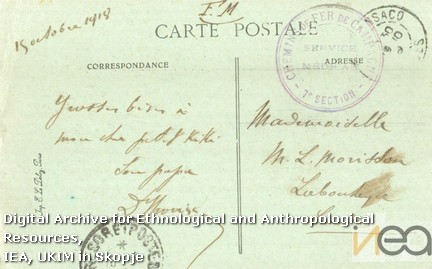 15 octobre 1918
F.M
CARTE POSTALE
CORRESPONDANCE
ADRESSE
CHEMINS DE FER DE CAMPAGNE
SERVICE
7e SECTION
Grosses bises à
mon cher petit Kiki
Son papa
Mademoiselle
M. L. Morisson
TRESOR ET POSTES
Digital Archive for Ethnological and Anthropological
Resources,
IEA, UKIM in Skopje
iea